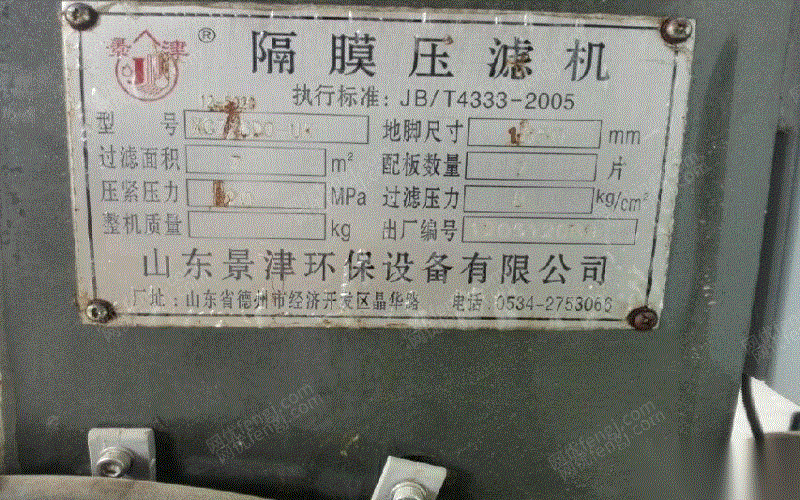 景津 ® 隔膜压滤机
执行标准: JB/T4333-2005
型 号 地脚尺寸 mm
过滤面积 m² 配板数量 片
压紧压力 MPa 过滤压力 kg/cm²
整机质量 kg 出厂编号
山东景津环保设备有限公司
厂址:山东省德州市经济开发区晶华路 电话:0534-2753066